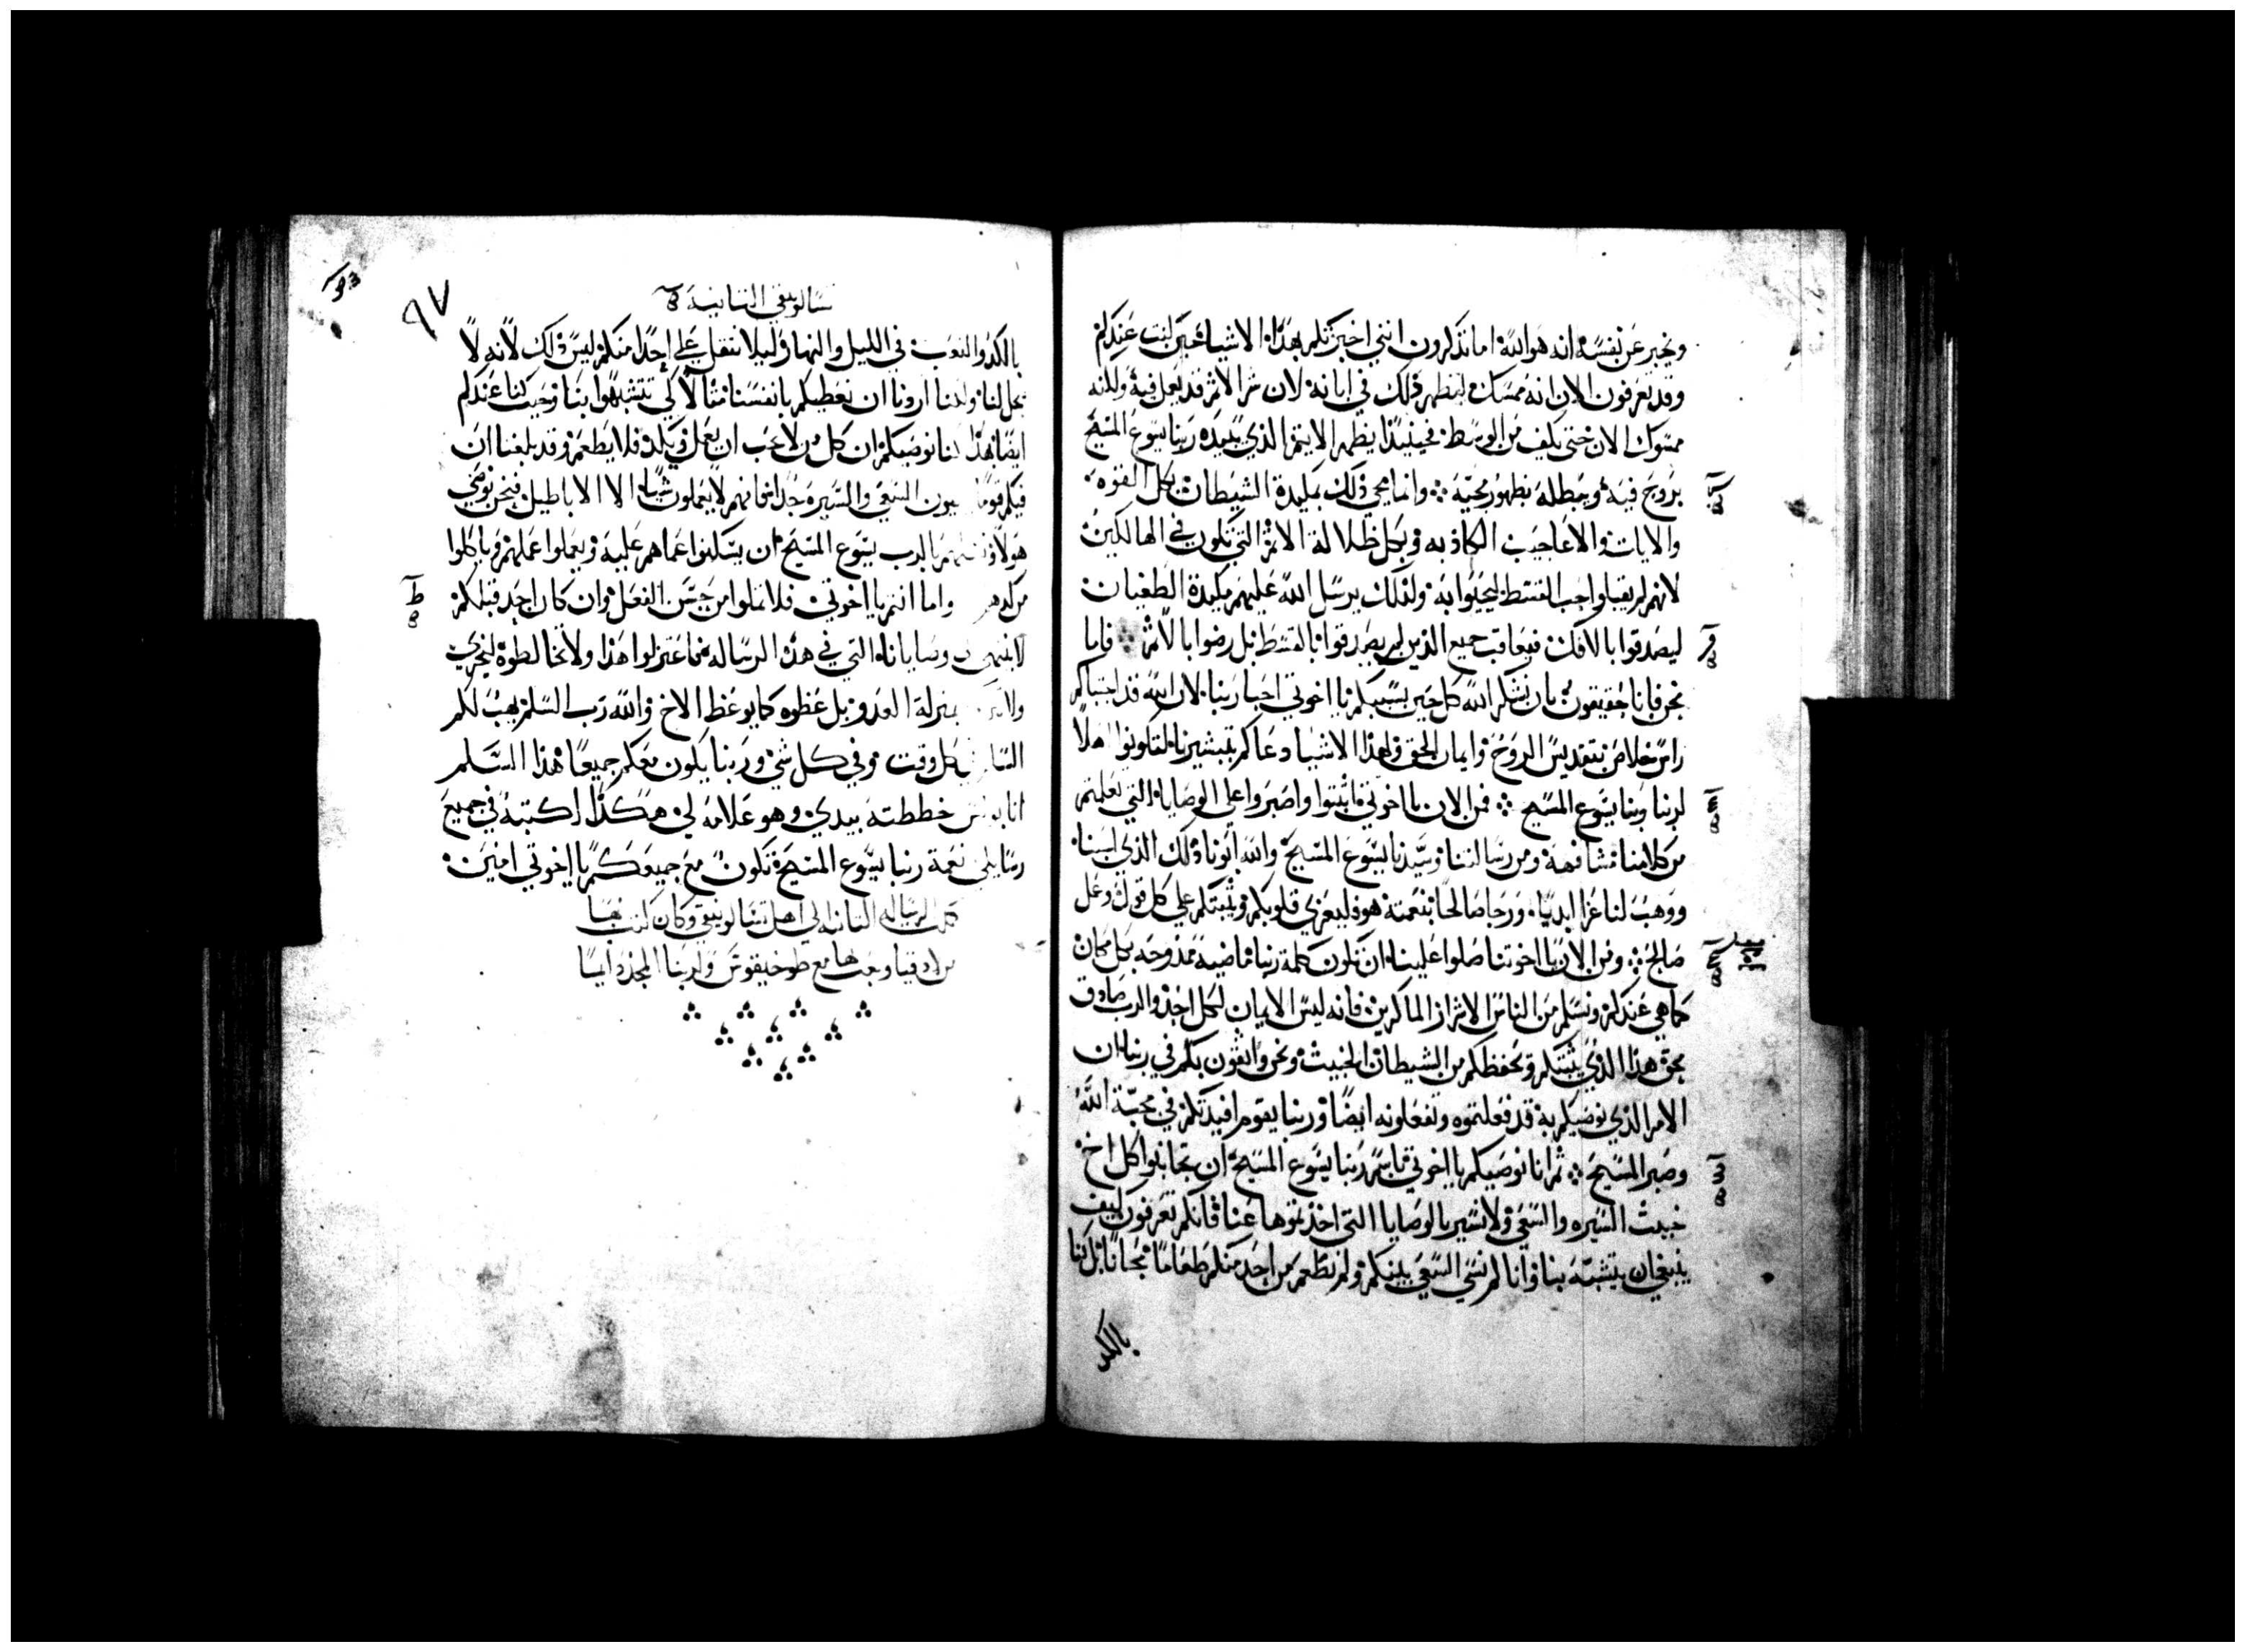 ويخبر عن نفسه انه هو الله اما تذكرون انني اخبرتكم بهذه الاشيا حين كنت عندكم
وقد تعرفون الان انه ممسك ليظهر ذلك في ابانه لان سر الاثم قد يعمل فيه ولكنه
ممسوك الان حتى يكف من الوسط فحينيذ يظهر الايتم الذي يبيده ربنا يسوع المسيح
بروح فيه ويبطله بظهور مجيه وانما مجي ذلك بمكيدة الشيطان بكل القوه
والايات والاعاجيب الكاذبه وبكل ظلالة الاثم التي تكون في الهالكين
لانهم لم يقبلوا حب القسط ليحيوا به ولذلك يرسل الله عليهم مكيدة الطغيان
ليصدقوا بالافك فيعاقب جميع الذين لم يصدقوا بالقسط بل رضوا بالاثم فاما
نحن فانا حقيقون بان نشكر الله كل حين بسببكم يا اخوتي احبا ربنا لان الله قد اجتباكم
راس خلاص بتقديس الروح وايمان الحق ولهذا الاشيا دعاكم بتبشيرنا لتكونوا اهلا
لربنا ربنا يسوع المسيح فمن الان يا اخوتي فاثبتوا واصبروا على الوصايا التي تعلمتم
من كلامنا مشافهة ومن رسالتنا وسيدنا يسوع المسيح والله ابونا ذلك الذي احبنا
ووهب لنا عزا ابديا ورجا صالحا بنعمته هو فليعزي قلوبكم ويثبتكم على كل قول وعمل
صالح ومن الان يا اخوتنا صلوا علينا ان تكون كلمة ربنا ماضية ممدوحه بكل مكان
كما هي عندكم ونسلم من الناس الاشرار الماكرين فانه ليس الايمان لكل احد والرب صادق
بحق هذا الذي يثبتكم ويحفظكم من الشيطان الخبيث ونحن واثقون بكم في ربنا ان
الامر الذي نوصيكم به قد فعلتموه وتفعلونه ايضا وربنا يقوم افيدتكم في محبة الله
وصبر المسيح ثم انا نوصيكم يا اخوتي باسم ربنا يسوع المسيح ان تجانبوا كل اخ
خبيث السيره والسعي ولا يسير بالوصايا التي اخذتموها عنا فانكم تعرفون كيف
ينبغي ان يتشبه بنا وانا لم نسي السعي بينكم ولم نطعم من احد منكم طعاما مجانا بل كنا
بالكد
تسالونيقي الثانية
٩٧
بالكد والتعب في الليل والنهار ليلا نثقل على احد منكم ليس ذلك لانه لا
يحل لنا ولكننا اردنا ان نعطيكم بانفسنا مثالا لكي تتشبهوا بنا وحيث كنا عندكم
ايضا بهذا كنا نوصيكم ان كل من لا يحب ان يعمل ويكد فلا يطعم وقد بلغنا ان
فيكم قوما السعي والسيره جدا انهم لا يعملون شيا الا الاباطيل فنحن نوصي
هولا بالرب يسوع المسيح ان يسكنوا عما هم عليه ويعملوا عملهم وياكلوا
من كدهم واما انتم يا اخوتي فلا تملوا من حسن الفعل وان كان احد قبلكم
لا ينتهي وصايانا التي في هذه الرساله فاعتزلوا هذا ولا تخالطوه ليخزي
بمنزلة العدو بل عظوه كما يوعظ الاخ والله رب السلم يهب لكم
كل وقت وفي كل شي وربنا يكون معكم جميعا هذا السلم
انا بولس خططته بيدي وهو علامه لي هكذا اكتبه في جميع
رسايلي نعمة ربنا يسوع المسيح تكون مع جميعكم يا اخوتي امين
كملت الرساله الثانيه الى اهل تسالونيقي وكان كتب بها
من لادقيا وبعث بها مع طوخيقوس ولربنا المجد دايما